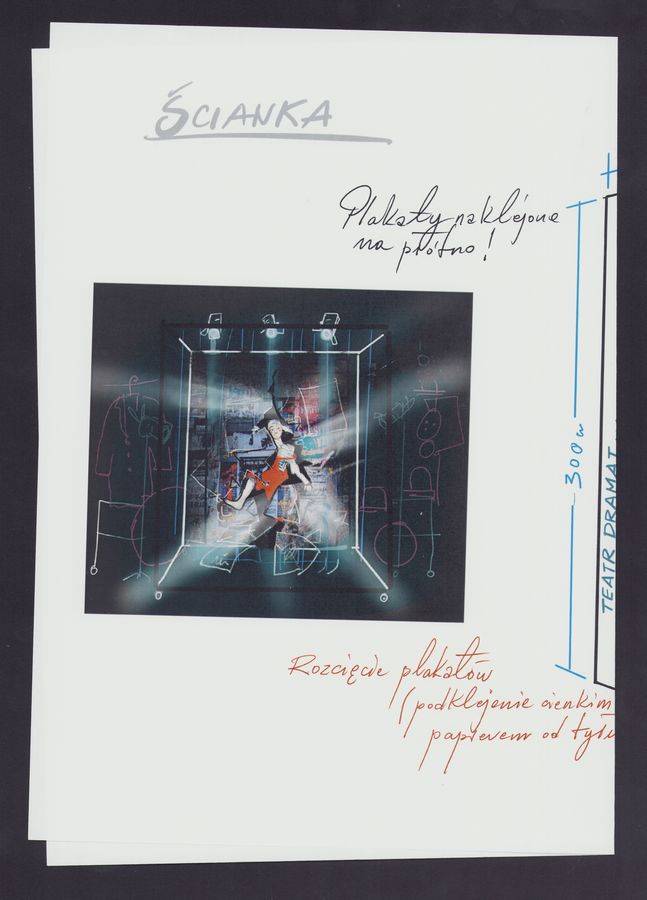 ŚCIANKA
Plakaty naklejone
na płótno!
300 m
TEATR DRAMAT
Rozcięcie plakatów
(podklejenie cienkim
papierem od tyłu